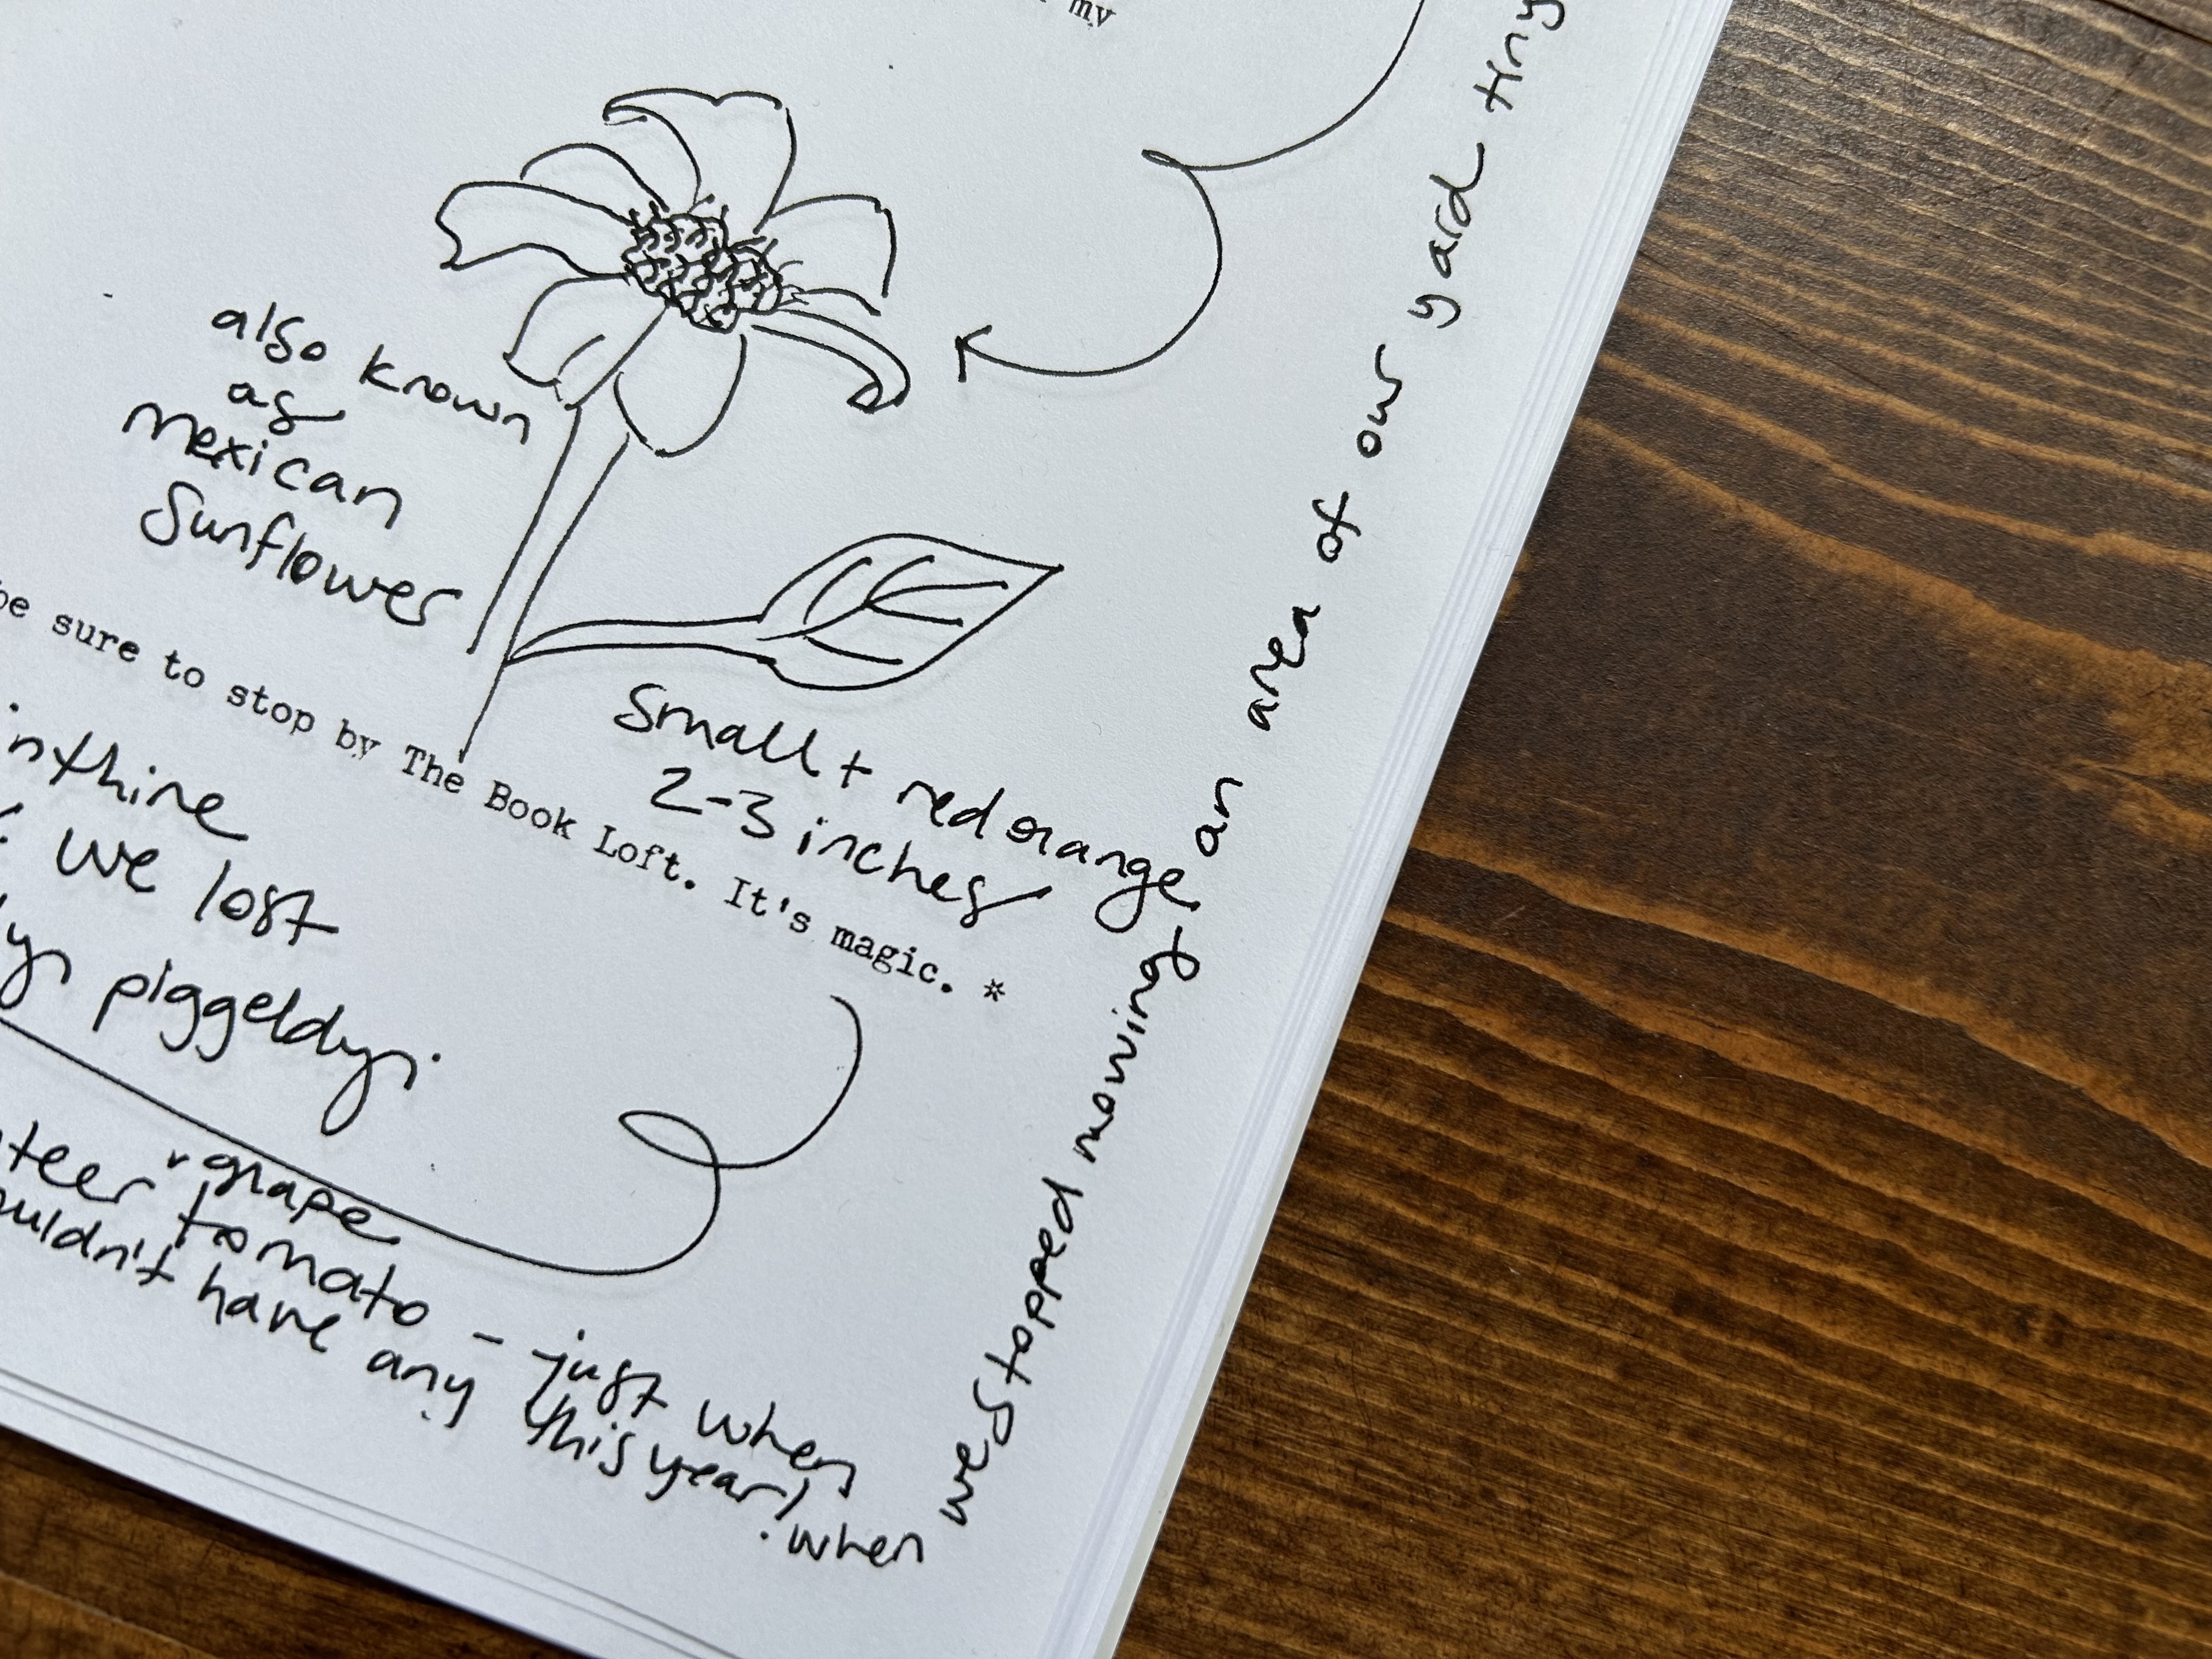 my
also known
as
mexican
Sunflower
be sure to stop by The Book Loft. It's magic. *
Small + red orange
2-3 inches
inthine
we lost
piggeldy.
grape
tomato - just when
have any this year! when
we stopped mowing an area of our yard tiny